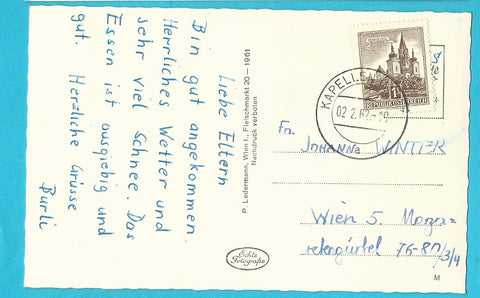 Liebe Eltern
Bin gut angekommen.
Herrliches Wetter und
sehr viel Schnee. Das
Essen ist ausgiebig und
gut. Herzliche Grüsse
Burli
P. Ledermann, Wien I., Fleischmarkt 20 — 1961
Nachdruck verboten
REPUBLIK ÖSTERREICH
KAPELLE
02.2.62-18
Fr. JOHANNA WINTER
Wien 5. Marga=
retengürtel 76-80/3/4
Echte
Fotografie
M